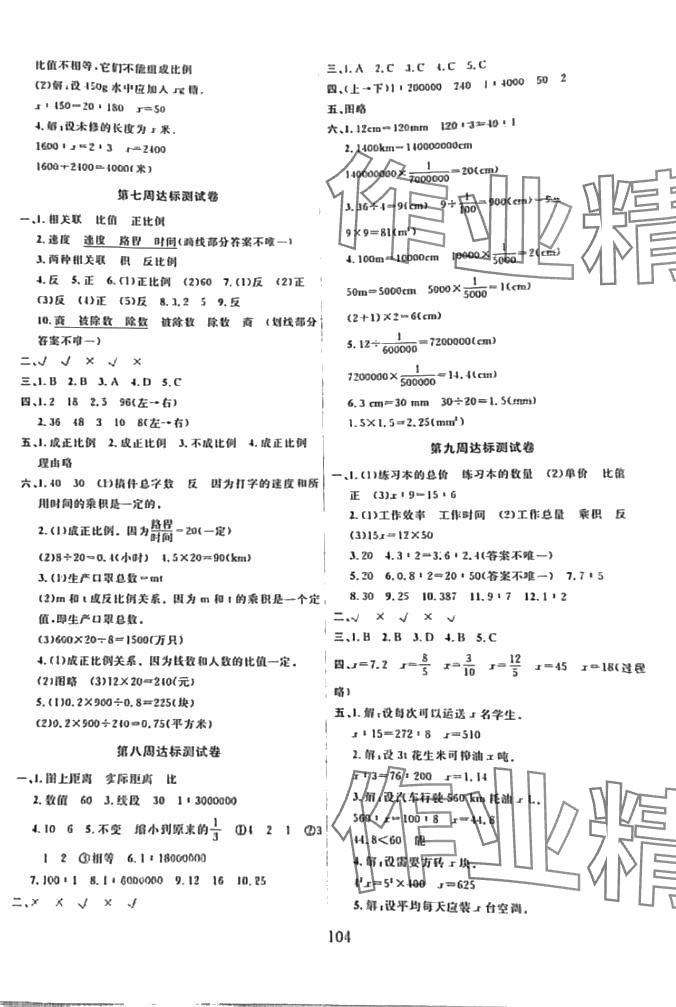 比值不相等,它们不能组成比例
(2)解:设450g水中应加入xg糖.
x:450=20:180 x=50
4.解:设未修的长度为x米.
1600:x=2:3 x=2400
1600+2400=4000(米)
第七周达标测试卷
一、1.相关联 比值 正比例
2.速度 速度 路程 时间(画线部分答案不唯一)
3.两种相关联 积 反比例
4.反 5.正 6.(1)正比例 (2)60 7.(1)反 (2)正
(3)反 (4)正 (5)反 8.3,2 5 9.反
10.商 被除数 除数 被除数 除数 商 (划线部分
答案不唯一)
二、√ √ × √ ×
三、1.B 2.B 3.A 4.D 5.C
四、1.2 18 2.3 96(左→右)
2.36 48 3 10 8(左→右)
五、1.成正比例 2.成正比例 3.不成比例 4.成正比例
理由略
六、1.40 30 (1)稿件总字数 反 因为打字的速度和所
用时间的乘积是一定的。
2.(1)成正比例。因为路程/时间=20(一定)
(2)8÷20=0.4(小时) 4.5×20=90(km)
3.(1)生产口罩总数=mt
(2)m和t成反比例关系。因为m和t的乘积是一个定
值,即生产口罩总数。
(3)600×20÷8=1500(万只)
4.(1)成正比例关系。因为钱数和人数的比值一定。
(2)图略 (3)12×20=240(元)
5.(1)0.2×900÷0.8=225(块)
(2)0.2×900÷240=0.75(平方米)
第八周达标测试卷
一、1.图上距离 实际距离 比
2.数值 60 3.线段 30 1:3000000
4.10 6 5.不变 缩小到原来的1/3 ①4 2 1 ②3
1 2 ③相等 6.1:18000000
7.100:1 8.1:6000000 9.12 16 10.25
二、× × √ × √
三、1.A 2.C 3.C 4.B 5.C
四、(上→下)1:200000 240 1:4000 50 2
五、图略
六、1.12cm=120mm 120:3=40:1
2.1400km=140000000cm
140000000×1/7000000=20(cm)
3.36÷4=9(cm) 9÷1/100=900(cm)=9m
9×9=81(m²)
4.100m=10000cm 10000×1/5000=2(cm)
50m=5000cm 5000×1/5000=1(cm)
(2+1)×2=6(cm)
5.12÷1/600000=7200000(cm)
7200000×1/500000=14.4(cm)
6.3cm=30mm 30÷20=1.5(mm)
1.5×1.5=2.25(mm²)
第九周达标测试卷
一、1.(1)练习本的总价 练习本的数量 (2)单价 比值
正 (3)x:9=15:6
2.(1)工作效率 工作时间 (2)工作总量 乘积 反
(3)15x=12×50
3.20 4.3:2=3.6:2.4(答案不唯一)
5.20 6.0.8:2=20:50(答案不唯一) 7.7:5
8.30 9.25 10.387 11.9:12 12.1:2
二、√ × √ × √
三、1.B 2.B 3.D 4.B 5.C
四、x=7.2 x=8/5 x=3/10 x=12/5 x=45 x=18(过程
略)
五、1.解:设每次可以运送x名学生。
x:15=272:8 x=510
2.解:设3t花生米可榨油x吨。
x:3=76:200 x=1.14
3.解:设汽车行驶560km耗油xL。
560:x=100:8 x=44.8
44.8<60 能
4.解:设需要方砖x块。
4²x=5²×400 x=625
5.解:设平均每天应装x台空调。
104
作业精
作业精